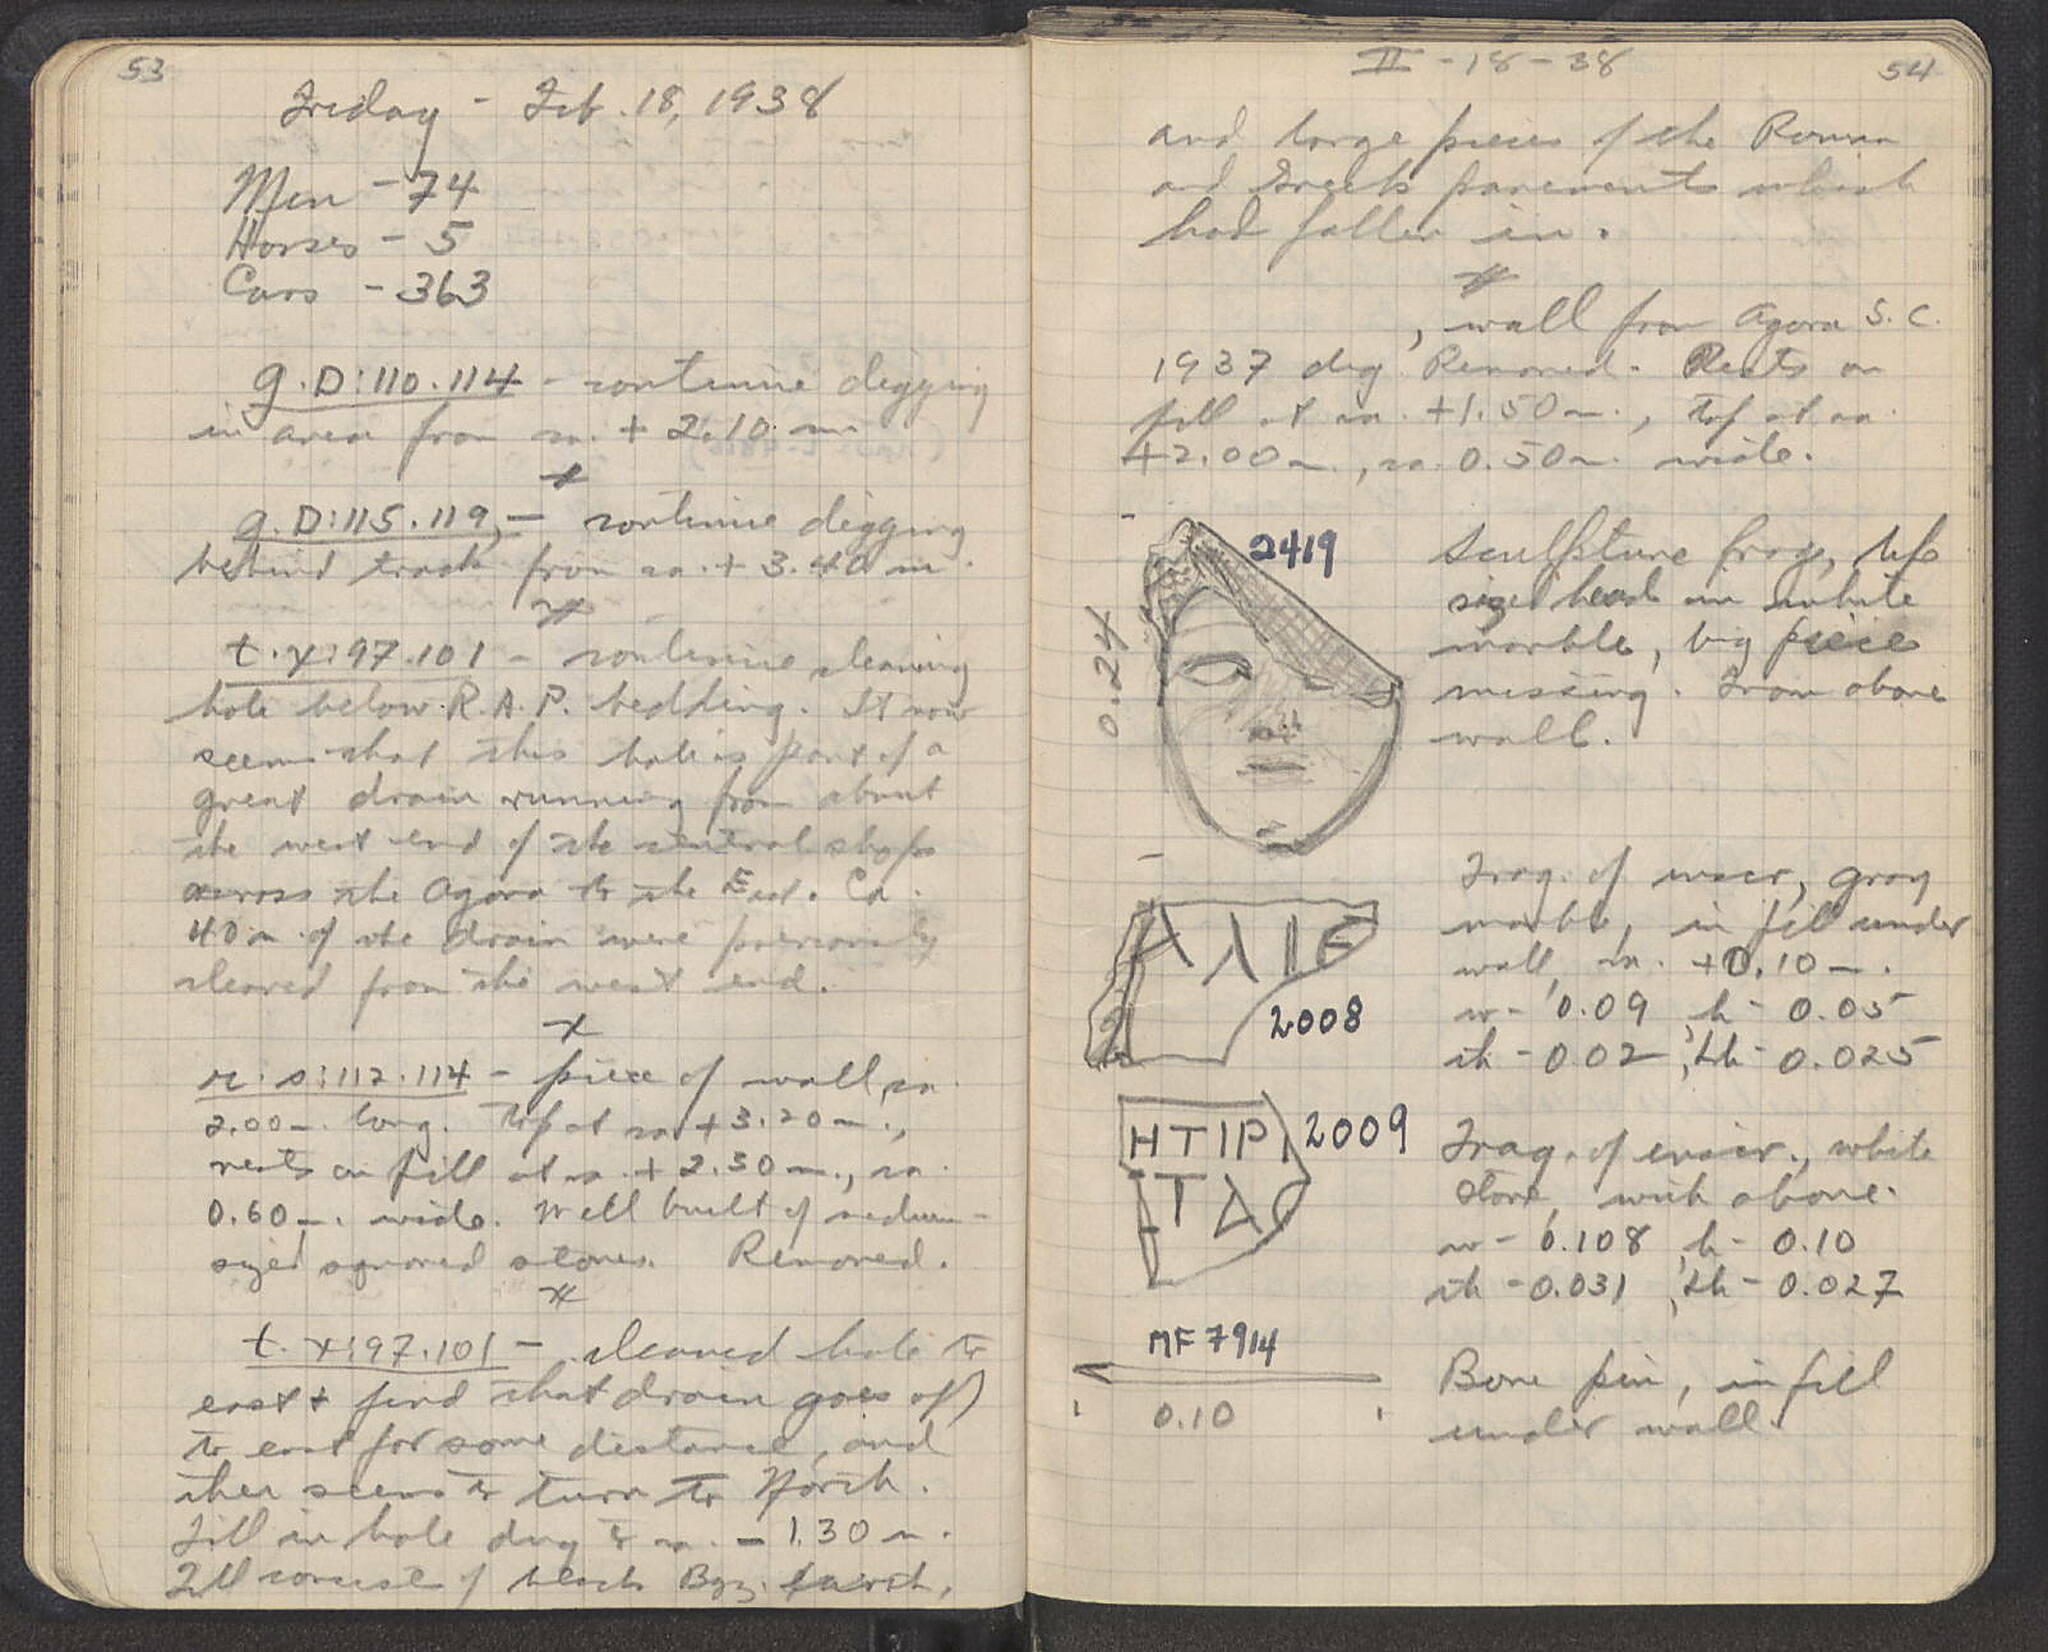 53
Friday - Feb. 18, 1938
Men - 74
Horses - 5
Cars - 363
g.D:110.114 - continue digging
in area from ca. + 2.10 m
x
g.D:115.119, - continue digging
behind track from ca. + 3.40 m.
x
t.x:97.101 - continue cleaning
hole below R.A.P. bedding. It now
seems that this hole is part of a
great drain running from about
the west end of the central shops
across the Agora to the East. Ca.
40 m. of the drain were previously
cleared from the west end.
x
r.s:112.114 - piece of wall, ca.
2.00 m. long. Top at ca. +3.20 m.,
rests on fill at ca. + 2.30 m., ca.
0.60 m. wide. Well built of medium-
sized squared stones. Removed.
x
t.x:97.101 - cleared hole to
east + find that drain goes off
to east for some distance, and
then seems to turn to North.
Fill in hole dug to ca. - 1.30 m.
Fill consist of black Byz. earth,
II - 18 - 38
54
and large pieces of the Roman
and Greek pavements which
had fallen in.
x
, wall from Agora S.C.
1937 dig. Removed. Rests on
fill at ca. +1.50 m., top at ca.
+2.00 m., ca. 0.50 m. wide.
2419
0.24
Sculpture frag., life
sized head in white
marble, big piece
missing. From above
wall.
ΛΛΙΕ
2008
Frag. of inscr., gray
marble, in fill under
wall, ca. +0.10 m.
w - 0.09, h - 0.05
th - 0.02, Lh - 0.025
ΗΤΙΡ
ΤΔΟ
2009
Frag. of inscr., white
stone, with above.
w - 0.108, h - 0.10
th - 0.031, Lh - 0.027
MF 7914
0.10
Bone pin, in fill
under wall.